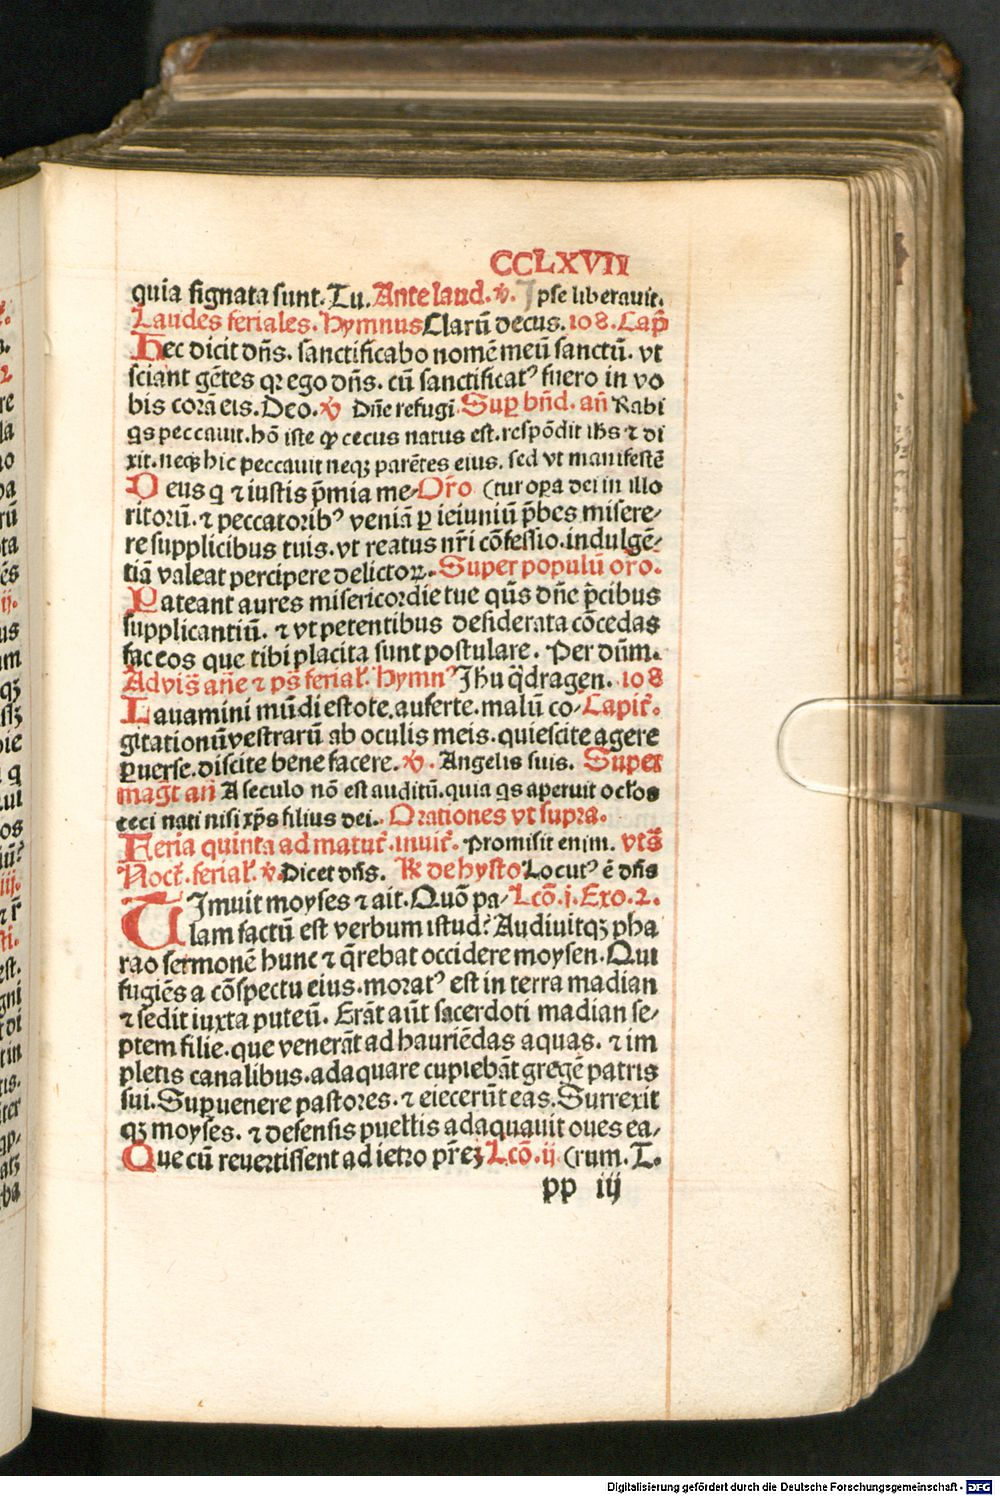 CCLXVII
quia signata sunt. Tu. Ante laud. ℣. Ipse liberauit.
Laudes feriales. Hymnus Clarū decus. 108. Cap̄
Hec dicit dn̄s. sanctificabo nomē meū sanctū. vt
sciant gētes qꝛ ego dn̄s. cū sanctificatꝰ fuero in vo
bis corā eis. Deo. ℣ Dn̄e refugi. Suꝑ bn̄d. an̄ Rabi
qs peccauit. hō iste ꝙ cecus natus est. respōdit ih̄s ⁊ di
xit. neqꝫ hic peccauit neqꝫ parētes eius. sed vt manifestē
Deus q ⁊ iustis p̄mia me⸗ Or̄o (tur oꝑa dei in illo
ritorū. ⁊ peccatoribꝰ veniā ꝑ ieiuniū p̄bes misere⸗
re supplicibus tuis. vt reatus nr̄i cōfessio. indulgē⸗
tiā valeat percipere delictoꝝ. Super populū or̄o.
Pateant aures misericordie tue qs̄ dn̄e p̄cibus
supplicantiū. ⁊ vt petentibus desiderata cōcedas
fac eos que tibi placita sunt postulare. Per dn̄m.
Ad vis̄ an̄e ⁊ ps̄ ferial. Hymnꝰ Jh̄u q̄dragen. 108
Lauamini mūdi estote. auferte. malū co⸗ Capit̄.
gitationū vestrarū ab oculis meis. quiescite agere
ꝑuerse. discite bene facere. ℣. Angelis suis. Super
magt̄ an̄ A seculo nō est auditū. quia qs aperuit ocl̄os
ceci nati nisi xp̄s filius dei. Orationes vt supra.
Feria quinta ad matut̄. inuit̄. Promisit enim. vts̄
Noct̄. ferial. ℣. Dicet dn̄s. ℟ de hysto Locutꝰ ē dn̄s
TImuit moyses ⁊ ait. Quō pa⸗ Lcō. j. Exo. 2.
lam factū est verbum istud? Audiuitqꝫ pha
rao sermonē hunc ⁊ q̄rebat occidere moysen. Qui
fugiēs a cōspectu eius. moratꝰ est in terra madian
⁊ sedit iuxta puteū. Erāt aūt sacerdoti madian se⸗
ptem filie. que venerāt ad hauriēdas aquas. ⁊ im
pletis canalibus. adaquare cupiebāt gregē patris
sui. Suꝑuenere pastores. ⁊ eiecerūt eas. Surrexit
qꝫ moyses. ⁊ defensis puellis adaquauit oues ea⸗
Que cū reuertissent ad ietro pr̄eꝫ Lcō. ij (rum. T.
pp iij
Digitalisierung gefördert durch die Deutsche Forschungsgemeinschaft - DFG